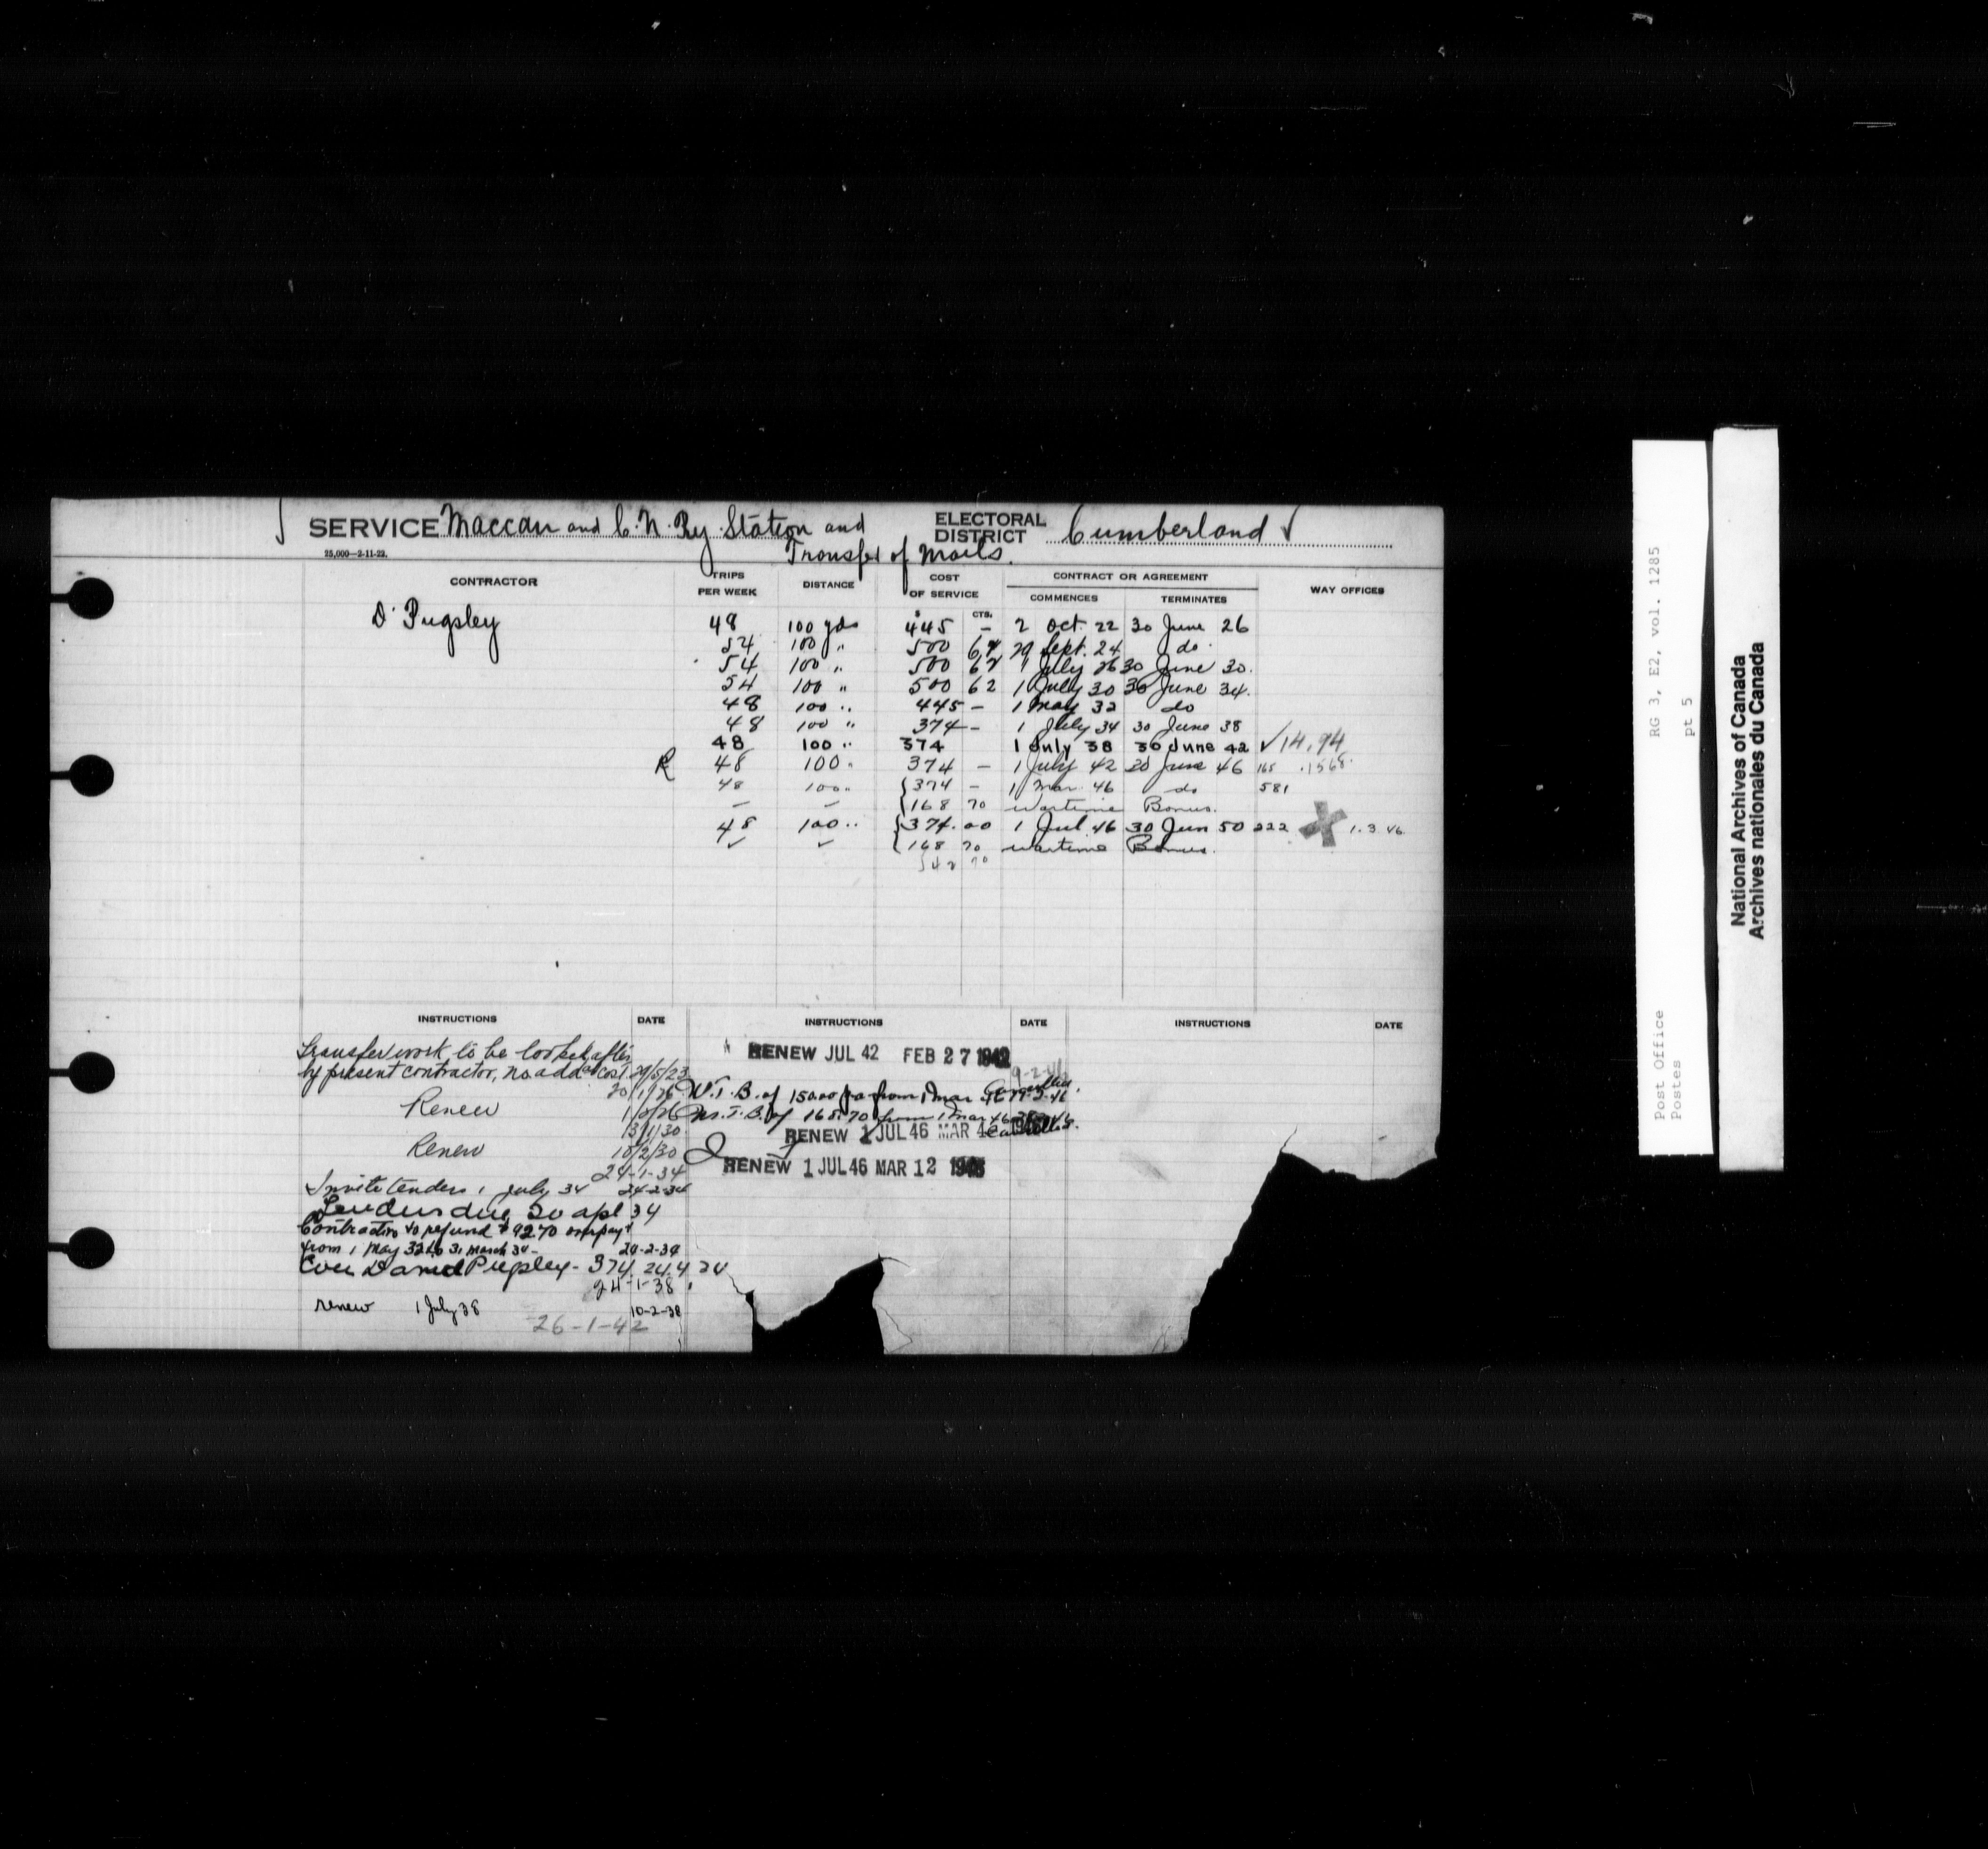 SERVICE Maccan and C.N. Ry Station and
Transfer of Mails.
ELECTORAL DISTRICT Cumberland ✓
25,000—2-11-22.
CONTRACTOR TRIPS PER WEEK DISTANCE COST OF SERVICE CONTRACT OR AGREEMENT WAY OFFICES
$ CTS. COMMENCES TERMINATES
D. Pugsley 48 100 yds 445 – 2 Oct. 22 30 June 26
54 100 " 500 62 29 Sept. 24 do
54 100 " 500 62 1 July 26 30 June 30.
54 100 " 500 62 1 July 30 30 June 34.
48 100 " 445 – 1 May 32 do
48 100 " 374 – 1 July 34 30 June 38
48 100 " 374 1 July 38 30 June 42 ✓14.94
R 48 100 " 374 – 1 July 42 30 June 46 165 .1568
48 100 " {374 – 1 Mar. 46 do 581
– – {168 70 wartime Bonus.
48 100 " {374.00 1 Jul 46 30 Jun 50 222 1.3.46
✓ ✓ {168 70 wartime Bonus.
542 70
INSTRUCTIONS DATE INSTRUCTIONS DATE INSTRUCTIONS DATE
Transfer work to be looked after
by present contractor, no add'l cost. 29/5/23
20/1/26
Renew 1/2/26
13/1/30
Renew 10/2/30
24-1-34
Invite tenders 1 July 34 24-2-34
Tenders due 20 apl 34
Contractor to refund $92.70 overpay't
from 1 May 32 to 31 March 34 - 24-2-34
Con Daniel Pugsley - 374 24.4 34
24-1-38
renew 1 July 38 10-2-38
26-1-42
RENEW JUL 42 FEB 27 1942
W.T.B. of 150.00 pa from 1 Mar Cancelled.
W.T.B. of 168.70 from 1 Mar 46
RENEW 1 JUL 46 MAR Cancelled.
RENEW 1 JUL 46 MAR 12 1946
RG 3, E2, vol. 1285
pt 5
Post Office
Postes
National Archives of Canada
Archives nationales du Canada